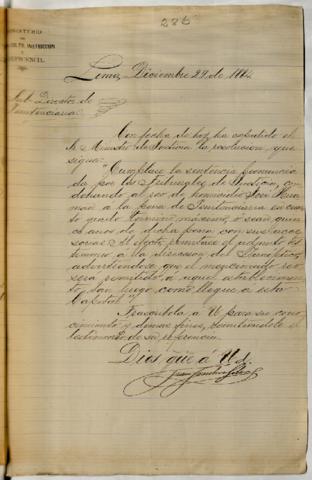 286
MINISTERIO
DE
JUSTICIA, CULTO, INSTRUCCION
Y
BENEFICENCIA.
Lima, Diciembre 29 de 188
Sub-Director de
Penitenciaria.
Con fecha de hoy ha expedido el
Sr. Ministro de Justicia la resolucion, que
sigue:
"Cúmplase la sentencia pronuncia
da por los Tribunales de Justicia, con
denando al reo de homicidio José Hua
man á la pena de Penitenciaria en cuar
to grado término máximo, ó sean quin
ce años de dicha pena con
Al efecto, pásese el adjunto tes
timonio á la Direccion del Panóptico,
advirtiéndose que el mencionado reo
será remitido á aquel establecimien
to, tan luego como llegue á esta
Capital."
Trascríbola á U. para su cono
cimiento y demas fines, remitiéndole el
testimonio de su referencia.
Dios gue á Ud.